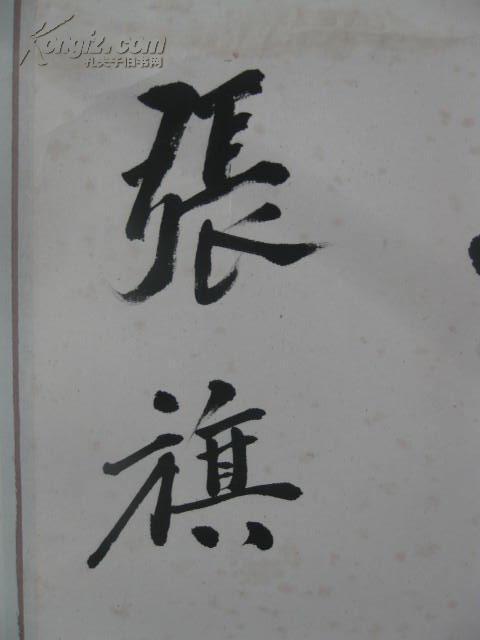 Kongfz.com
孔夫子旧书网
張
旗